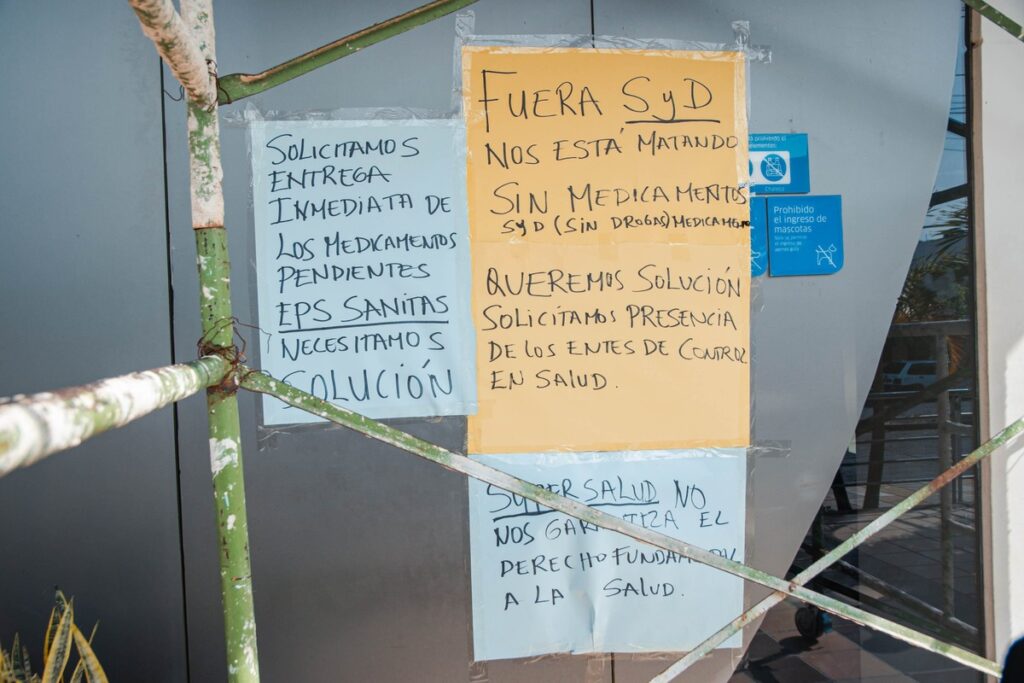 SOLICITAMOS
ENTREGA
INMEDIATA DE
LOS MEDICAMENTOS
PENDIENTES
EPS SANITAS
NECESITAMOS
SOLUCIÓN
FUERA SyD
NOS ESTÁ MATANDO
SIN MEDICAMENTOS
SyD (SIN DROGAS) MEDICAMEN
QUEREMOS SOLUCIÓN
SOLICITAMOS PRESENCIA
DE LOS ENTES DE CONTROL
EN SALUD.
SUPERSALUD NO
NOS GARANTIZA EL
DERECHO FUNDAMENTAL
A LA SALUD.
prohibido el
Prohibido
el ingreso de
mascotas